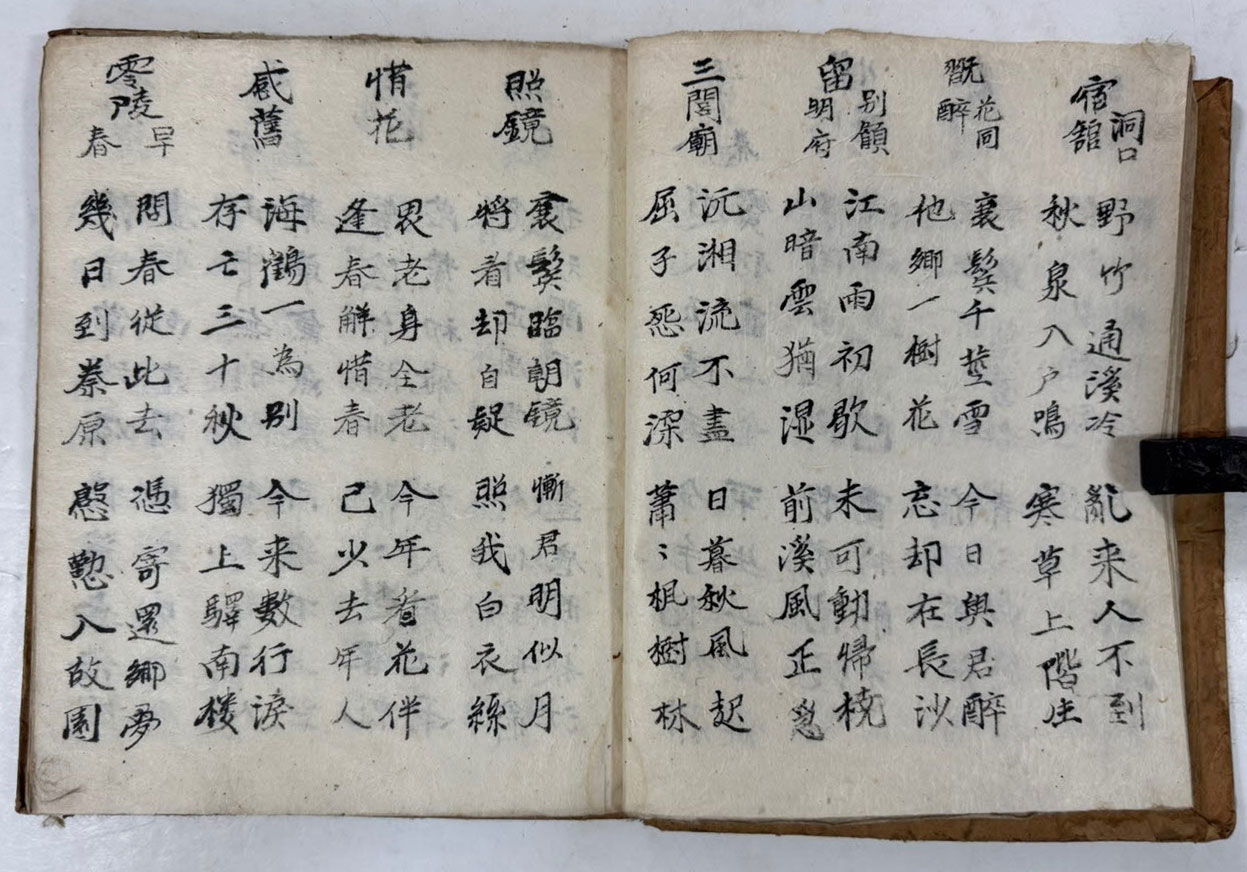 宿洞口舘
野竹通溪冷
秋泉入戶鳴
亂来人不到
寒草上階生
翫花同醉
衰鬂千莖雪
他鄉一樹花
今日與君醉
忘却在長沙
留別顧明府
江南雨初歇
山暗雲猶湿
未可動帰橈
前溪風正急
三閭廟
沅湘流不盡
屈子怨何深
日暮秋風起
蕭〻楓樹林
照鏡
衰鬂臨朝鏡
將看却自疑
慚君明似月
照我白衣絲
惜花
畏老身全老
逢春解惜春
今年看花伴
已少去年人
感舊
海鶴一為別
存亡三十秋
今来數行淚
獨上驛南樓
零陵早春
問春從此去
幾日到秦原
憑寄還鄉夢
慇懃入故園